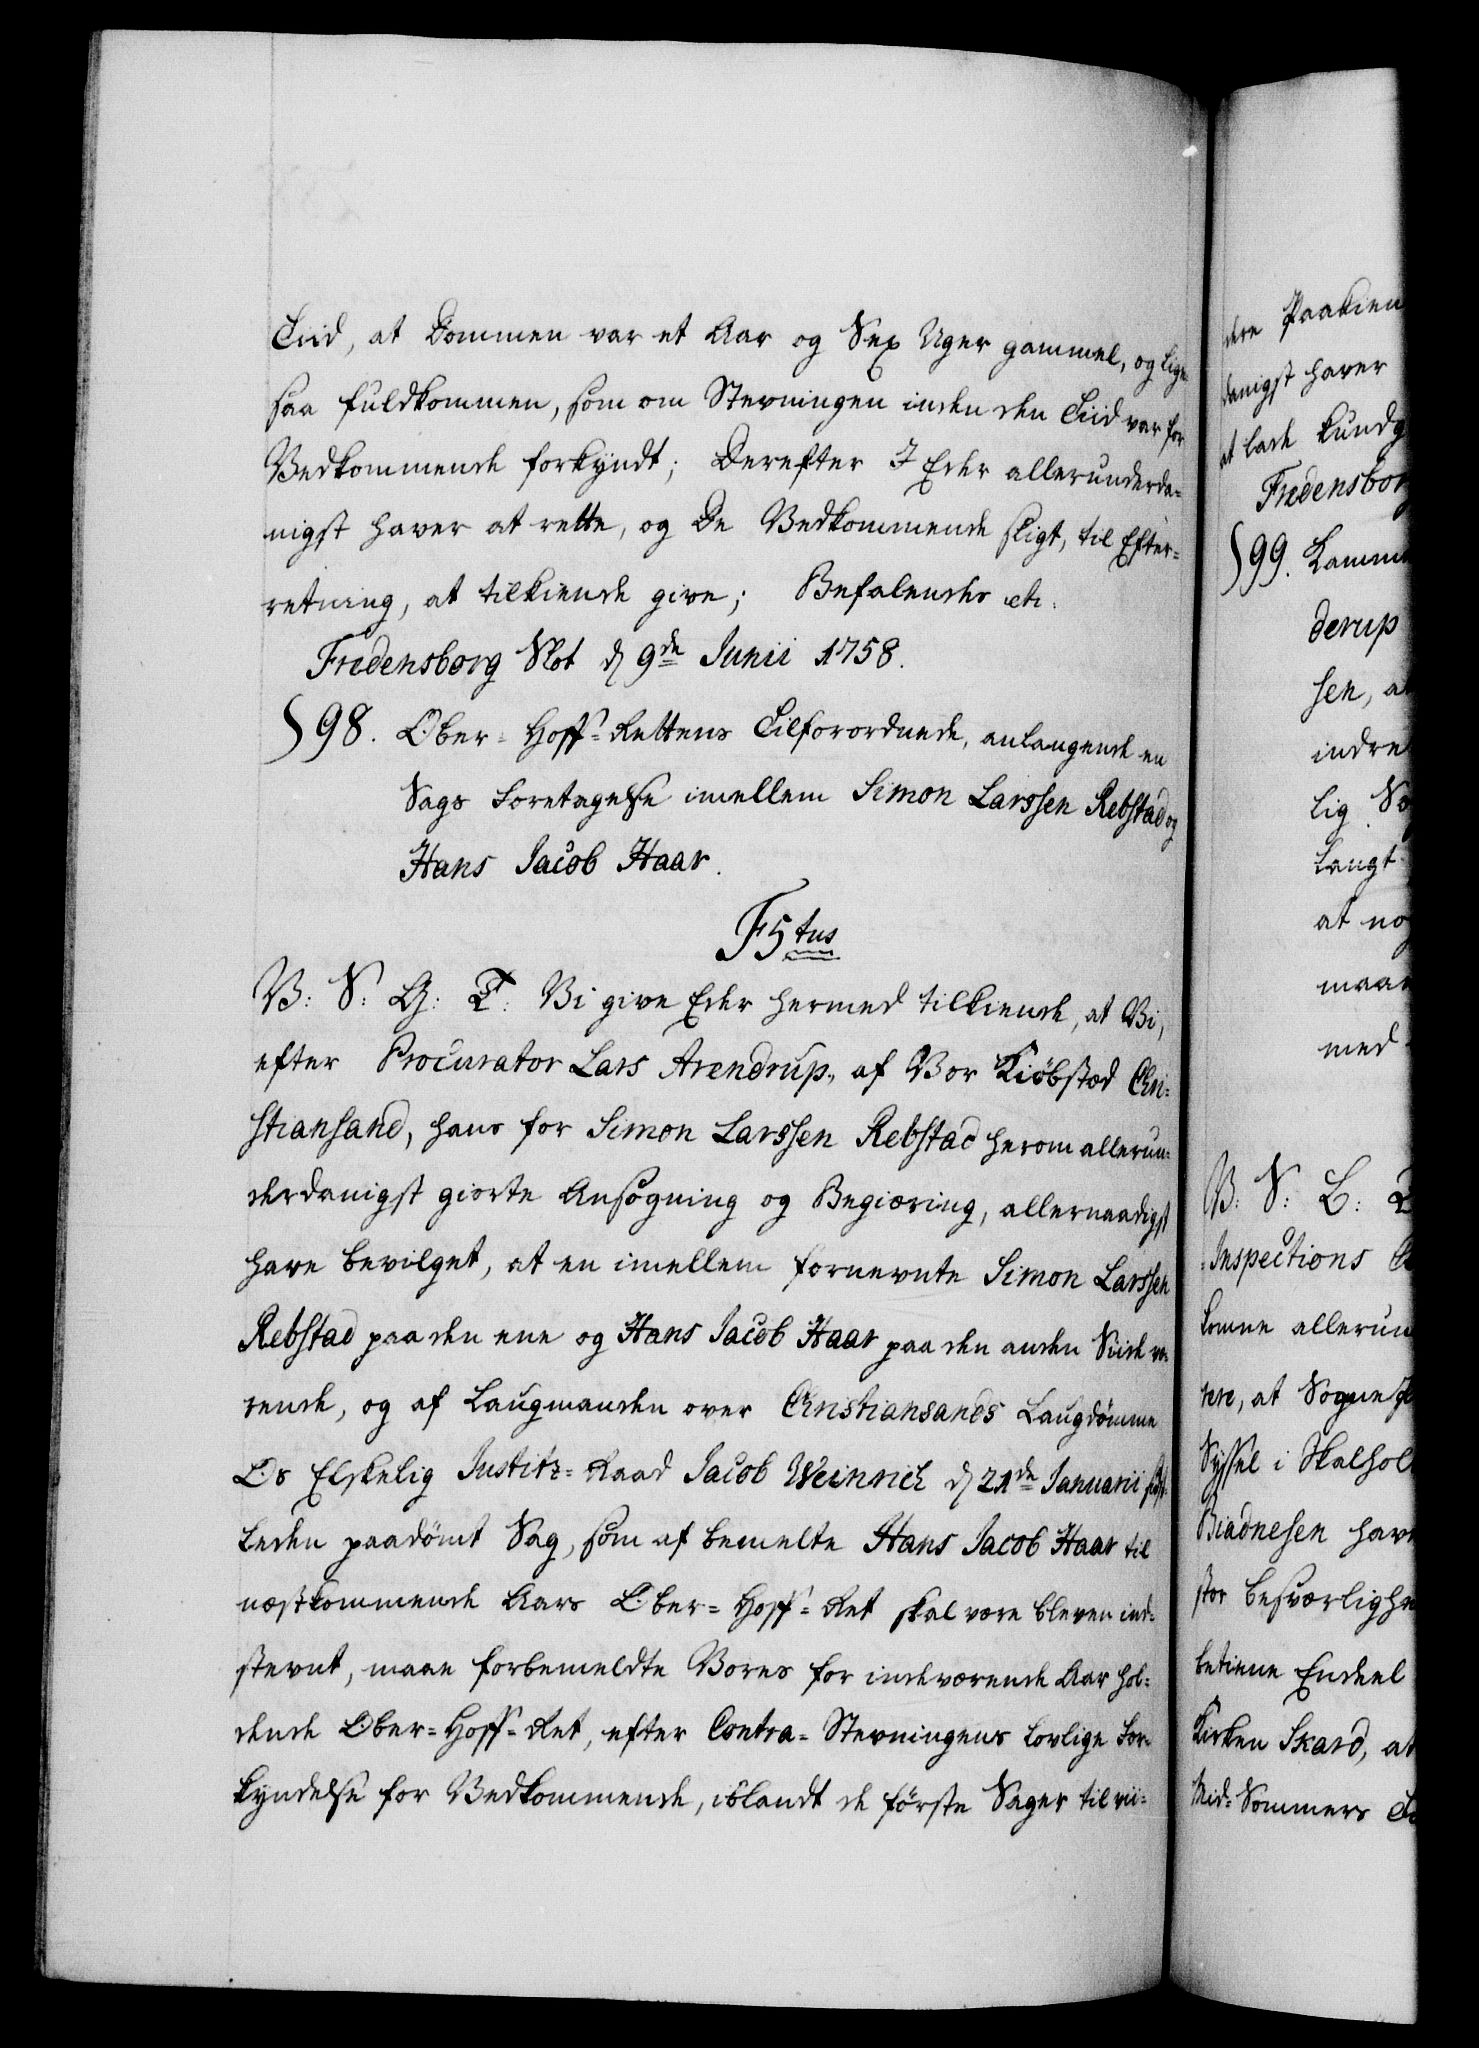 Tiid, at Dommen var et Aar og Sex Uger gammel, og lige-
saa fuldkommen, som om Stevningen inden den Tiid var for
Vedkommende forkyndt; Derefter I Eder allerunderda-
nigst haver at rette, og De Vedkommende sligt, til Efter-
retning, at tilkiende give; Befalendes etc.
Fredensborg Slot d 9de Junii 1758.
§ 98. Ober-Hoff-Rettens Tilforordnede, anlangende en
Sags Foretagelse imellem Simon Larssen Rebstad og
Hans Jacob Haar.
F5tus
V: S: G: T: Vi give Eder hermed tilkiende, at Vi,
efter Procurator Lars Arendrup, af Vor Kiöbstæd Chri-
stiansand, hans for Simon Larssen Rebstad herom allerun-
derdanigst giorte Ansøgning og Begiæring, allernaadigst
have bevilget, at en imellem fornevnte Simon Larssen
Rebstad paa den ene og Hans Jacob Haar paa den anden Siide væ-
rende, og af Laugmanden over Christiansands Laugdømme
Os Elskelig Justitz-Raad Jacob Weinrich d 21de Januarii sidst-
leden paadømt Sag, som af bemelte Hans Jacob Haar til
næstkommende Aars Ober-Hoff-Ret skal være bleven ind-
stevnt, maae forbemeldte Vores for indeværende Aar hol-
dende Ober-Hoff-Ret, efter Contra-Stevningens lovlige For-
kyndelse for Vedkommende, iblandt de første Sager til vii-
dere Paakien
danigst haver
at lade kundg
Fredensborg
§ 99. Camm
derup
sen, a
indre
lig So
langt
at no
maa
med
V: S: G: T
Inspections
komne allerun
rere, at Sogne
Syssel i Skalhol
Biadnesen hav
stor besværlighe
betiene Endeel
Kirken Skard, at
Mid-Sommers